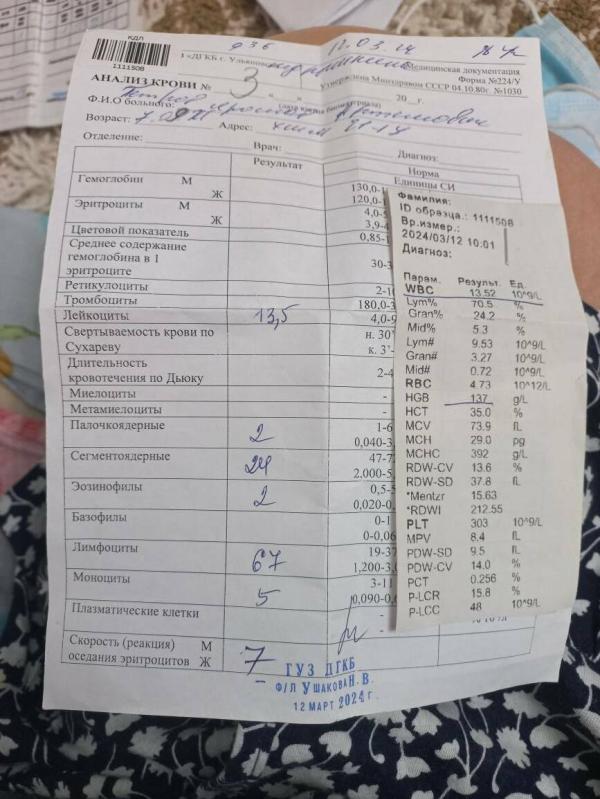 КДЛ
1111508
12.03.24
1 «ДГКБ г. Ульяновска
Медицинская документация
Форма №224/У
Утверждена Минздравом СССР 04.10.80г. №1030
АНАЛИЗ КРОВИ № 3
20__г.
Ф.И.О больного:
Возраст:
Адрес:
Отделение:
Врач:
Диагноз:
Результат Норма
Единицы СИ
Гемоглобин М 130,0-1
Ж 120,0-1
Эритроциты М 4,0-5
Ж 3,9-4
Цветовой показатель 0,85-1
Среднее содержание
гемоглобина в 1
эритроците 30-3
Ретикулоциты 2-10
Тромбоциты 180,0-3
Лейкоциты 13,5 4,0-9
Свертываемость крови по
Сухареву н. 30'
к. 3'-
Длительность
кровотечения по Дьюку 2-4
Миелоциты -
Метамиелоциты -
Палочкоядерные 2 1-6
0,040-3,
Сегментоядерные 24 47-7
2.000-5
Эозинофилы 2 0,5-5
0,020-0,
Базофилы 0-1
0-0,06
Лимфоциты 67 19-37
1,200-3,
Моноциты 5 3-11
0,090-0,
Плазматические клетки -
Скорость (реакция) М
оседания эритроцитов Ж 7
ГУЗ ДГКБ
Ф/Л УШАКОВА Н. В.
12 МАРТ 2024 г.
Фамилия:
ID образца.: 1111508
Вр.измер.:
2024/03/12 10:01
Диагноз:
Парам. Результ. Ед.
WBC 13.52 10^9/L
Lym% 70.5 %
Gran% 24.2 %
Mid% 5.3 %
Lym# 9.53 10^9/L
Gran# 3.27 10^9/L
Mid# 0.72 10^9/L
RBC 4.73 10^12/L
HGB 137 g/L
HCT 35.0 %
MCV 73.9 fL
MCH 29.0 pg
MCHC 392 g/L
RDW-CV 13.6 %
RDW-SD 37.8 fL
*Mentzr 15.63
*RDWI 212.55
PLT 303 10^9/L
MPV 8.4 fL
PDW-SD 9.5 fL
PDW-CV 14.0 %
PCT 0.256 %
P-LCR 15.8 %
P-LCC 48 10^9/L